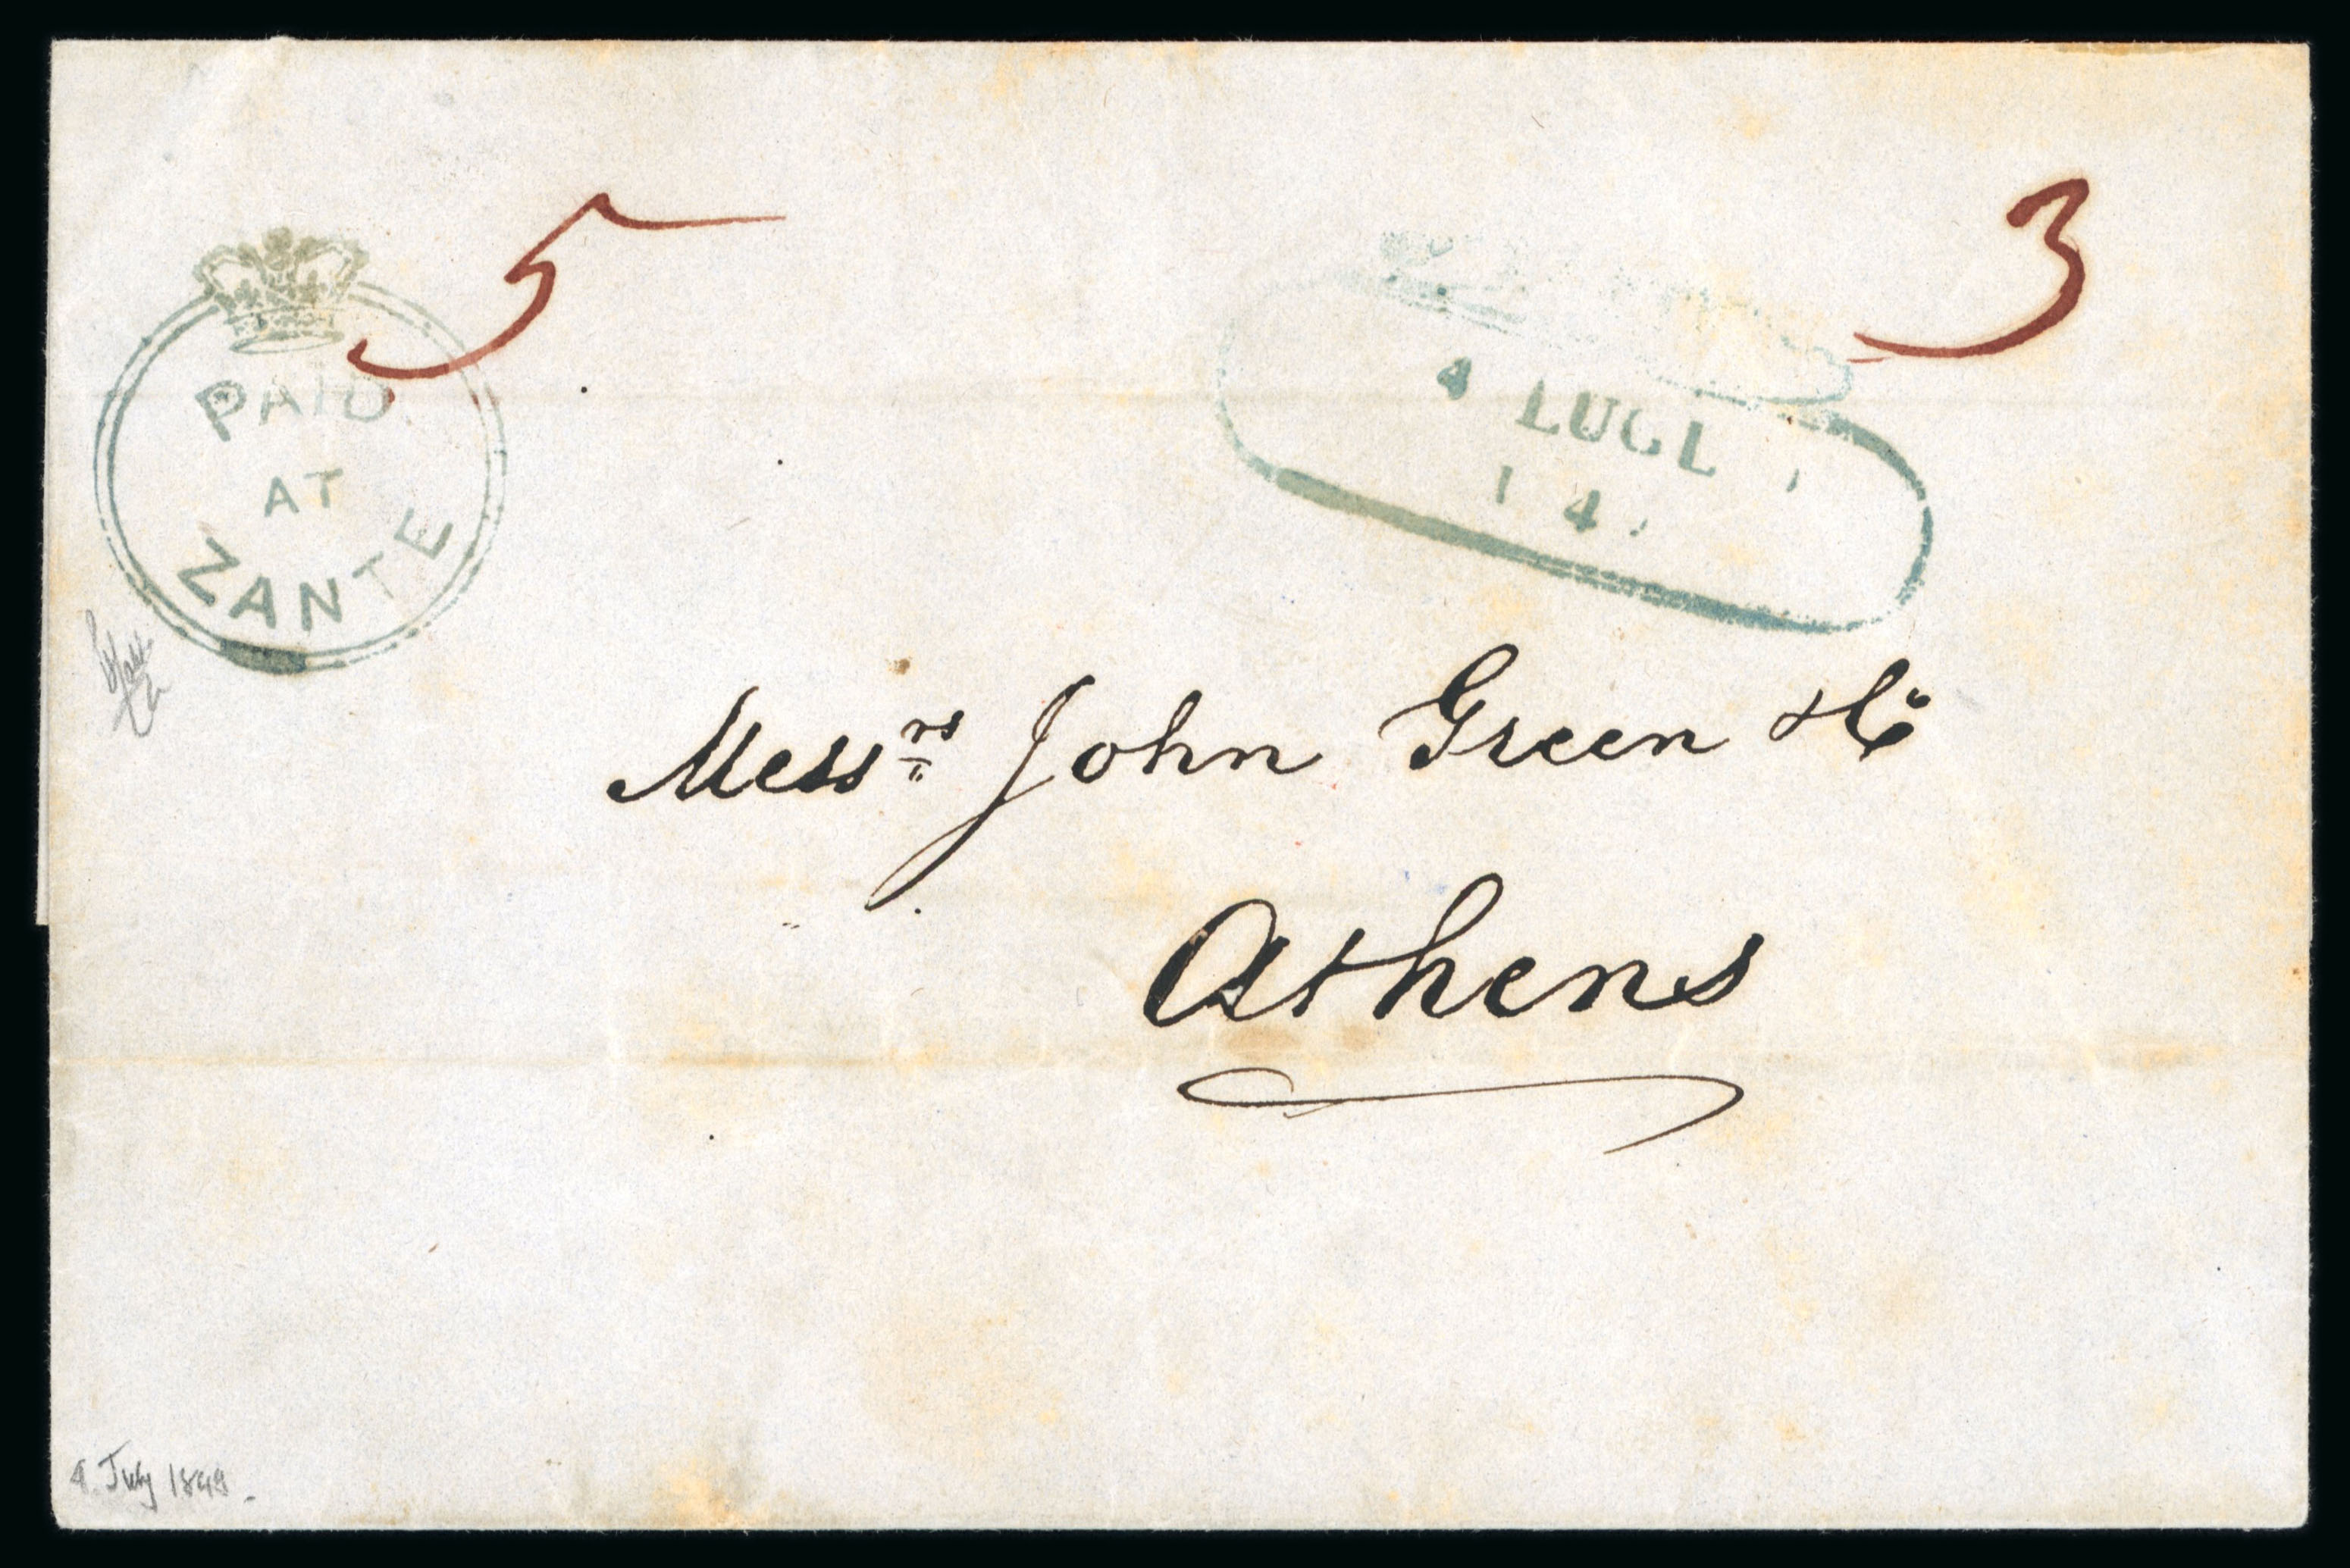 5
3
PAID
AT
ZANTE
4 LUGL
1 4
Mess.rs John Green & Co
Athens
4 July 1849